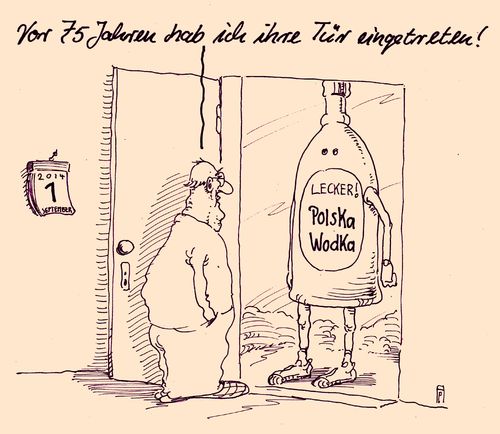 Vor 75 Jahren hab ich ihre Tür eingetreten!
2014
1
SEPTEMBER
LECKER!
Polska
Wodka
P